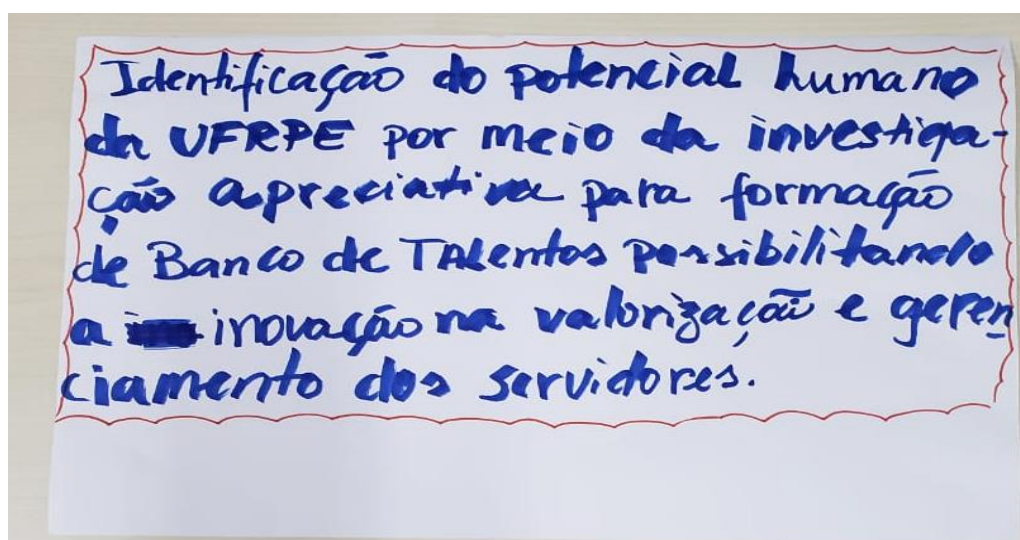 Identificação do potencial humano
da UFRPE por meio da investiga-
ção apreciativa para formação
de Banco de TAlentos possibilitando
a inovação na valorização e geren
ciamento dos servidores.